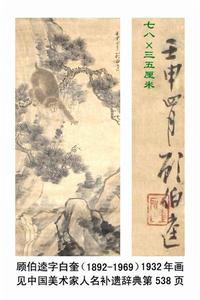 七八×三五厘米
壬申四月
顾伯逵
顾伯逵字白奎（1892-1969）1932年画
见中国美术家人名补遗辞典第538页